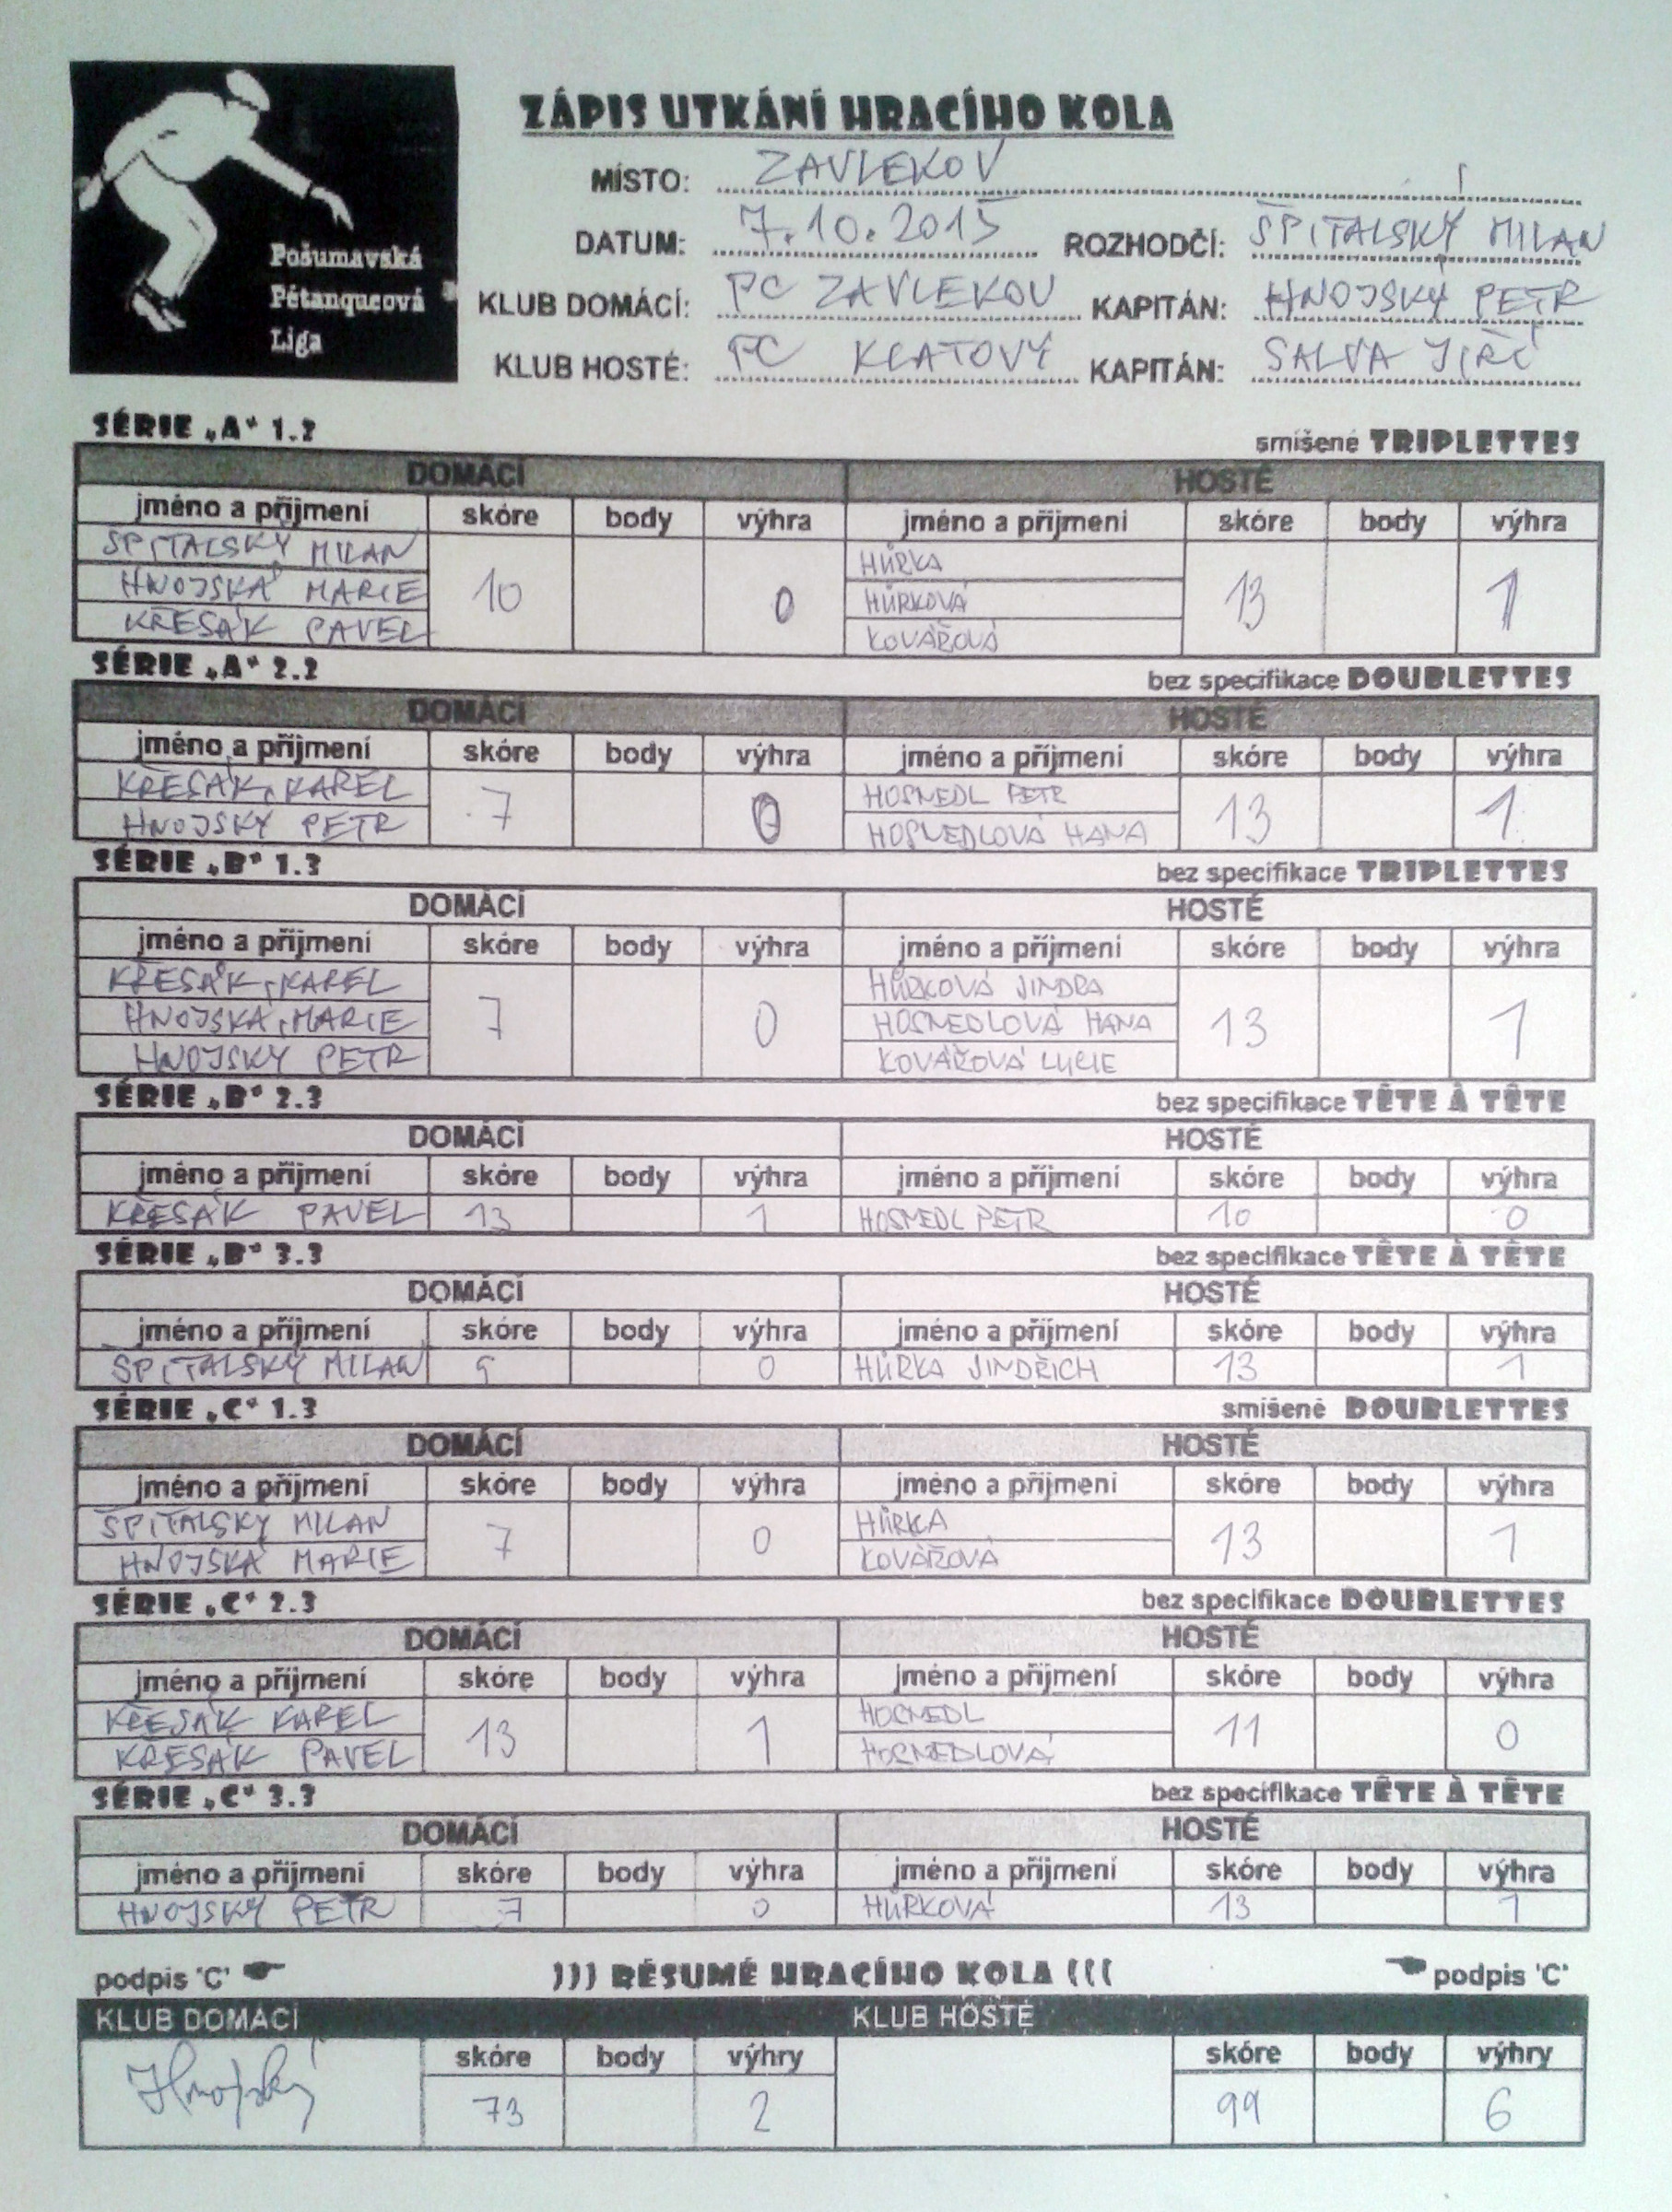 Pošumavská
Pétanqueová
Liga
ZÁPIS UTKÁNÍ HRACÍHO KOLA
MÍSTO: ZAVLEKOV
DATUM: 7.10.2015 ROZHODČÍ: ŠPITALSKÝ MILAN
KLUB DOMÁCÍ: PC ZAVLEKOV KAPITÁN: HNOJSKÝ PETR
KLUB HOSTÉ: PC KLATOVY KAPITÁN: SALVA JIŘÍ
SÉRIE „A“ 1.2 smíšené TRIPLETTES
DOMÁCÍ HOSTÉ
jméno a příjmení skóre body výhra jméno a příjmení skóre body výhra
ŠPITALSKÝ MILAN HŮRKA
HNOJSKÁ MARIE 10 0 HŮRKOVÁ 13 1
KŘESÁK PAVEL KOVÁŘOVÁ
SÉRIE „A“ 2.2 bez specifikace DOUBLETTES
DOMÁCÍ HOSTÉ
jméno a příjmení skóre body výhra jméno a příjmení skóre body výhra
KŘESÁK KAREL 7 0 HOSNEDL PETR 13 1
HNOJSKÝ PETR HOSNEDLOVÁ HANA
SÉRIE „B“ 1.3 bez specifikace TRIPLETTES
DOMÁCÍ HOSTÉ
jméno a příjmení skóre body výhra jméno a příjmení skóre body výhra
KŘESÁK KAREL HŮRKOVÁ JINDRA
HNOJSKÁ MARIE 7 0 HOSNEDLOVÁ HANA 13 1
HNOJSKÝ PETR KOVÁŘOVÁ LUCIE
SÉRIE „B“ 2.3 bez specifikace TÊTE À TÊTE
DOMÁCÍ HOSTÉ
jméno a příjmení skóre body výhra jméno a příjmení skóre body výhra
KŘESÁK PAVEL 13 1 HOSNEDL PETR 10 0
SÉRIE „B“ 3.3 bez specifikace TÊTE À TÊTE
DOMÁCÍ HOSTÉ
jméno a příjmení skóre body výhra jméno a příjmení skóre body výhra
ŠPITALSKÝ MILAN 9 0 HŮRKA JINDŘICH 13 1
SÉRIE „C“ 1.3 smíšené DOUBLETTES
DOMÁCÍ HOSTÉ
jméno a příjmení skóre body výhra jméno a příjmení skóre body výhra
ŠPITALSKÝ MILAN 7 0 HŮRKA 13 1
HNOJSKÁ MARIE KOVÁŘOVÁ
SÉRIE „C“ 2.3 bez specifikace DOUBLETTES
DOMÁCÍ HOSTÉ
jméno a příjmení skóre body výhra jméno a příjmení skóre body výhra
KŘESÁK KAREL 13 1 HOSNEDL 11 0
KŘESÁK PAVEL HOSNEDLOVÁ
SÉRIE „C“ 3.3 bez specifikace TÊTE À TÊTE
DOMÁCÍ HOSTÉ
jméno a příjmení skóre body výhra jméno a příjmení skóre body výhra
HNOJSKÝ PETR 7 0 HŮRKOVÁ 13 1
podpis 'C' ))) RÉSUMÉ HRACÍHO KOLA ((( podpis 'C'
KLUB DOMÁCÍ KLUB HOSTÉ
skóre body výhry skóre body výhry
Hnojský 73 2 99 6